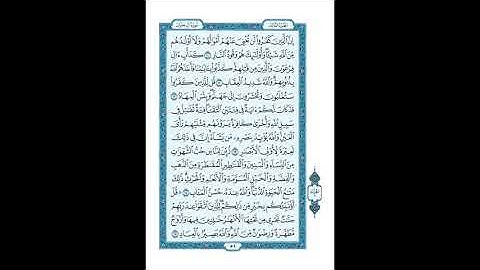 الجزء الثالث
سورة آل عمران
إِنَّ الَّذِينَ كَفَرُوا لَن تُغْنِيَ عَنْهُمْ أَمْوَالُهُمْ وَلَا أَوْلَادُهُم
مِّنَ اللَّهِ شَيْئًا وَأُولَٰئِكَ هُمْ وَقُودُ النَّارِ ١٠ كَدَأْبِ آلِ
فِرْعَوْنَ وَالَّذِينَ مِن قَبْلِهِمْ كَذَّبُوا بِآيَاتِنَا فَأَخَذَهُمُ اللَّهُ
بِذُنُوبِهِمْ وَاللَّهُ شَدِيدُ الْعِقَابِ ١١ قُل لِّلَّذِينَ كَفَرُوا
سَتُغْلَبُونَ وَتُحْشَرُونَ إِلَىٰ جَهَنَّمَ وَبِئْسَ الْمِهَادُ ١٢
قَدْ كَانَ لَكُمْ آيَةٌ فِي فِئَتَيْنِ الْتَقَتَا فِئَةٌ تُقَاتِلُ فِي
سَبِيلِ اللَّهِ وَأُخْرَىٰ كَافِرَةٌ يَرَوْنَهُم مِّثْلَيْهِمْ رَأْيَ
الْعَيْنِ وَاللَّهُ يُؤَيِّدُ بِنَصْرِهِ مَن يَشَاءُ إِنَّ فِي ذَٰلِكَ
لَعِبْرَةً لِّأُولِي الْأَبْصَارِ ١٣ زُيِّنَ لِلنَّاسِ حُبُّ الشَّهَوَاتِ
مِنَ النِّسَاءِ وَالْبَنِينَ وَالْقَنَاطِيرِ الْمُقَنطَرَةِ مِنَ الذَّهَبِ
وَالْفِضَّةِ وَالْخَيْلِ الْمُسَوَّمَةِ وَالْأَنْعَامِ وَالْحَرْثِ ذَٰلِكَ
مَتَاعُ الْحَيَاةِ الدُّنْيَا وَاللَّهُ عِندَهُ حُسْنُ الْمَآبِ ١٤ قُلْ
أَؤُنَبِّئُكُم بِخَيْرٍ مِّن ذَٰلِكُمْ لِلَّذِينَ اتَّقَوْا عِندَ رَبِّهِمْ
جَنَّاتٌ تَجْرِي مِن تَحْتِهَا الْأَنْهَارُ خَالِدِينَ فِيهَا وَأَزْوَاجٌ
مُّطَهَّرَةٌ وَرِضْوَانٌ مِّنَ اللَّهِ وَاللَّهُ بَصِيرٌ بِالْعِبَادِ ١٥
٥١